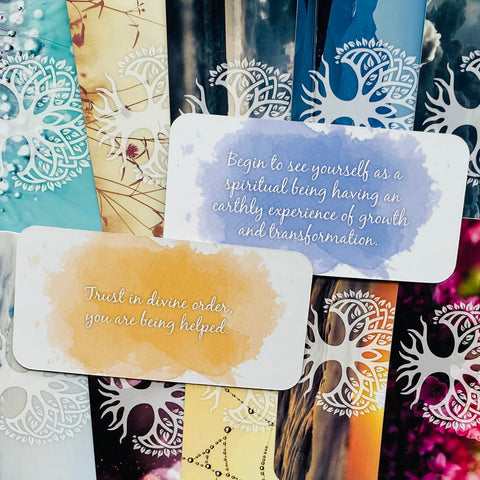 Begin to see yourself as a
spiritual being having an
earthly experience of growth
and transformation.
Trust in divine order;
you are being helped.